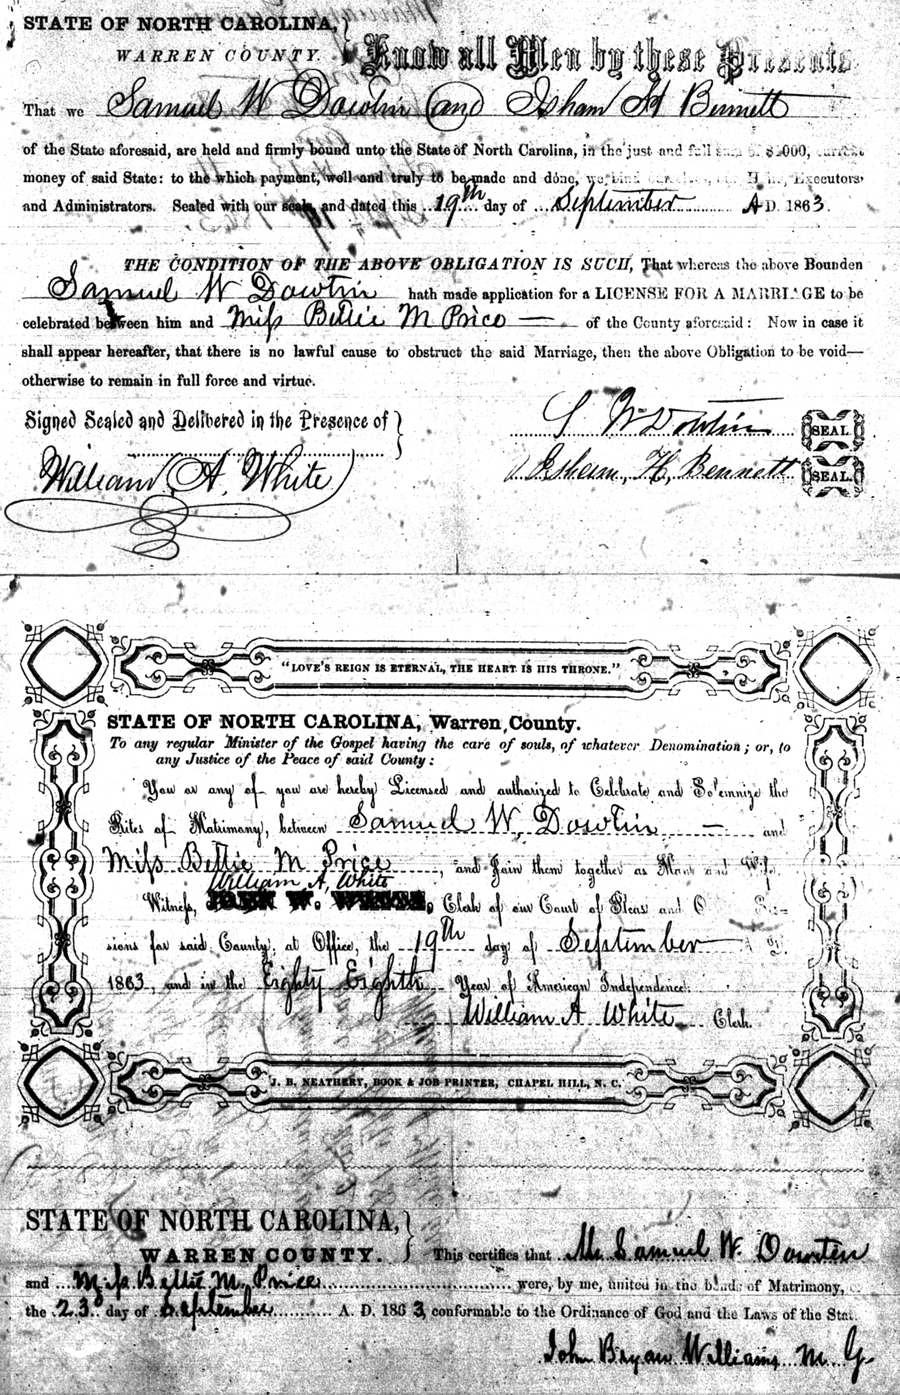 STATE OF NORTH CAROLINA,
WARREN COUNTY.
Know all Men by these Presents
That we Samuel W Dowtin and Isham H Bennett
of the State aforesaid, are held and firmly bound unto the State of North Carolina, in the just and full sum of $1000, current
money of said State: to the which payment, well and truly to be made and done, we bind ourselves, our Heirs, Executors
and Administrators. Sealed with our seals, and dated this 19th day of September A D. 1863.
THE CONDITION OF THE ABOVE OBLIGATION IS SUCH, That whereas the above Bounden
Samuel W Dowtin hath made application for a LICENSE FOR A MARRIAGE to be
celebrated between him and Miss Bettie M Price — of the County aforesaid: Now in case it
shall appear hereafter, that there is no lawful cause to obstruct the said Marriage, then the above Obligation to be void—
otherwise to remain in full force and virtue.
Signed Sealed and Delivered in the Presence of
S W Dowtin SEAL.
William A. White
Isham, H, Bennett SEAL.
"LOVE'S REIGN IS ETERNAL, THE HEART IS HIS THRONE."
STATE OF NORTH CAROLINA, Warren County.
To any regular Minister of the Gospel having the care of souls, of whatever Denomination; or, to
any Justice of the Peace of said County:
You or any of you are hereby Licensed and authorized to Celebrate and Solemnize the
Rites of Matrimony, between Samuel W, Dowtin — and
Miss Bettie M Price, and Join them together as Man and Wife.
William A, White
Witness, Clerk of our Court of Pleas and
sions for said County, at Office, the 19th day of September A D.
1863, and in the Eighty Eighth Year of American Independence.
William A White Clerk
J. B. NEATHERY, BOOK & JOB PRINTER, CHAPEL HILL, N. C.
STATE OF NORTH CAROLINA,
WARREN COUNTY.
This certifies that Mr Samuel W. Dowtin
and Miss Bettie M. Price were, by me, united in the bonds of Matrimony,
the 23d day of September A. D. 1863, conformable to the Ordinance of God and the Laws of the State
John Bryan Williams M G.